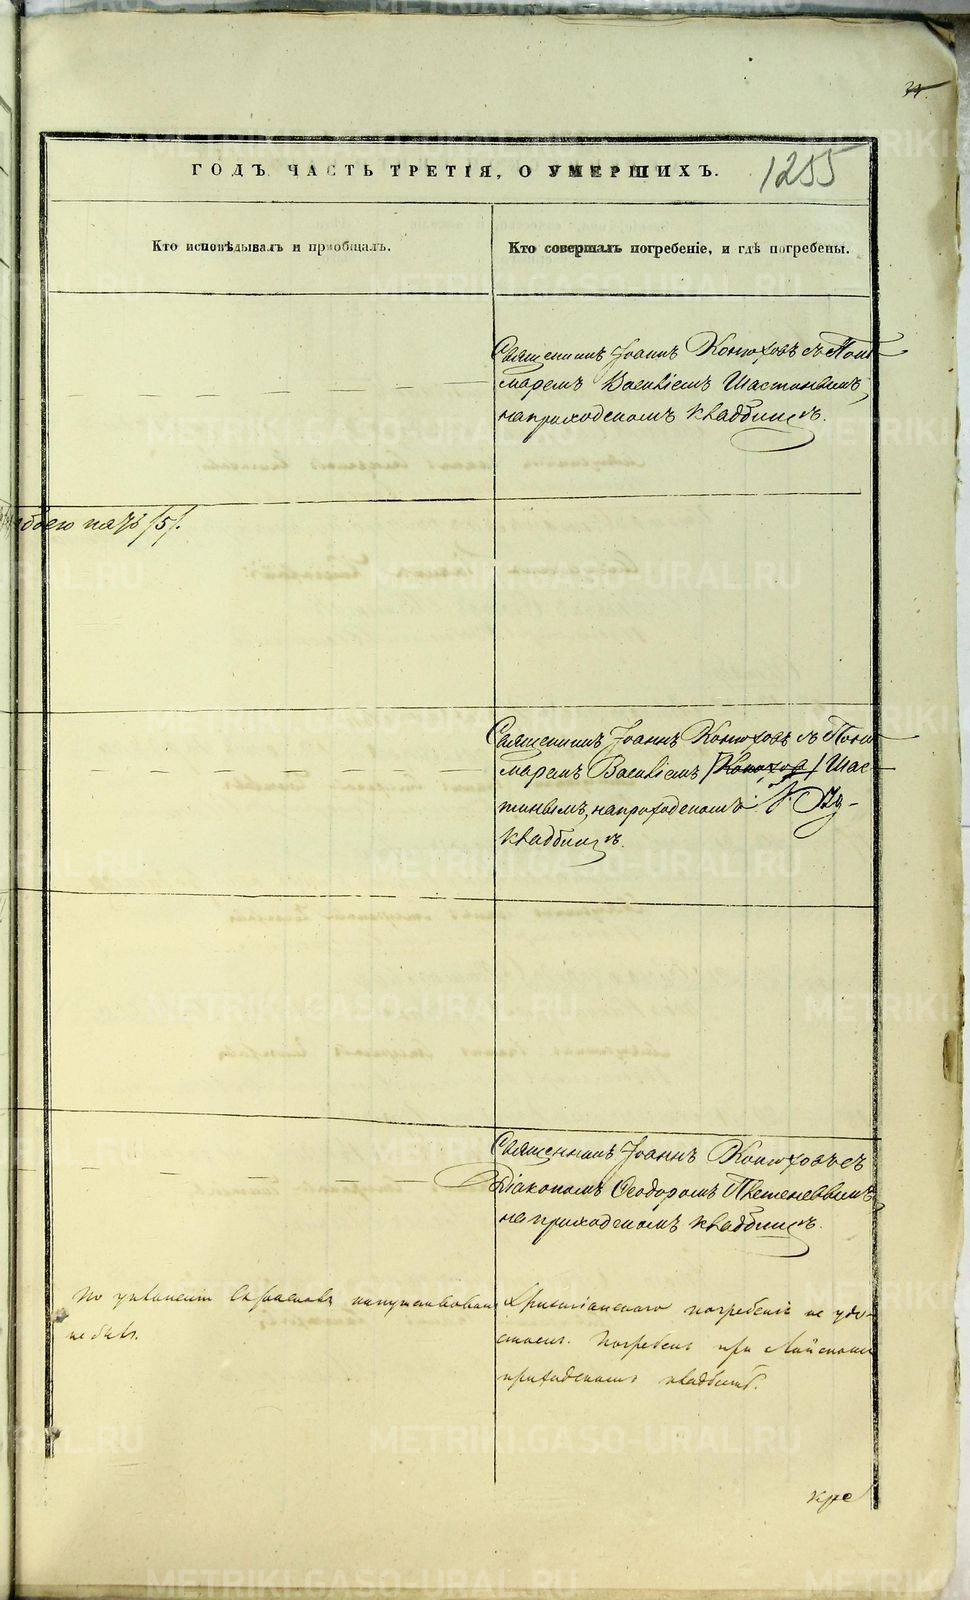 ГОДЪ ЧАСТЬ ТРЕТІЯ, О УМЕРШИХЪ.
1255
Кто исповѣдывалъ и пріобщалъ.
Кто совершалъ погребеніе, и гдѣ погребены.
Священникъ Іоаннъ Конюховъ съ Поно
маремъ Василіемъ Шастиновымъ,
на приходскомъ кладбищѣ.
/5/.
Священникъ Іоаннъ Конюховъ съ Поно
маремъ Василіемъ /Конюхов/ Шас-
тиновымъ, на приходскомъ
кладбищѣ.
Священникъ Іоаннъ Конюховъ съ
Діакономъ Ѳеодоромъ
на приходскомъ кладбищѣ.
не былъ.
Христіанскаго погребенія не удо-
стоенъ. Погребенъ при
приходскомъ кладбищѣ.
METRIKI.GASO-URAL.RU